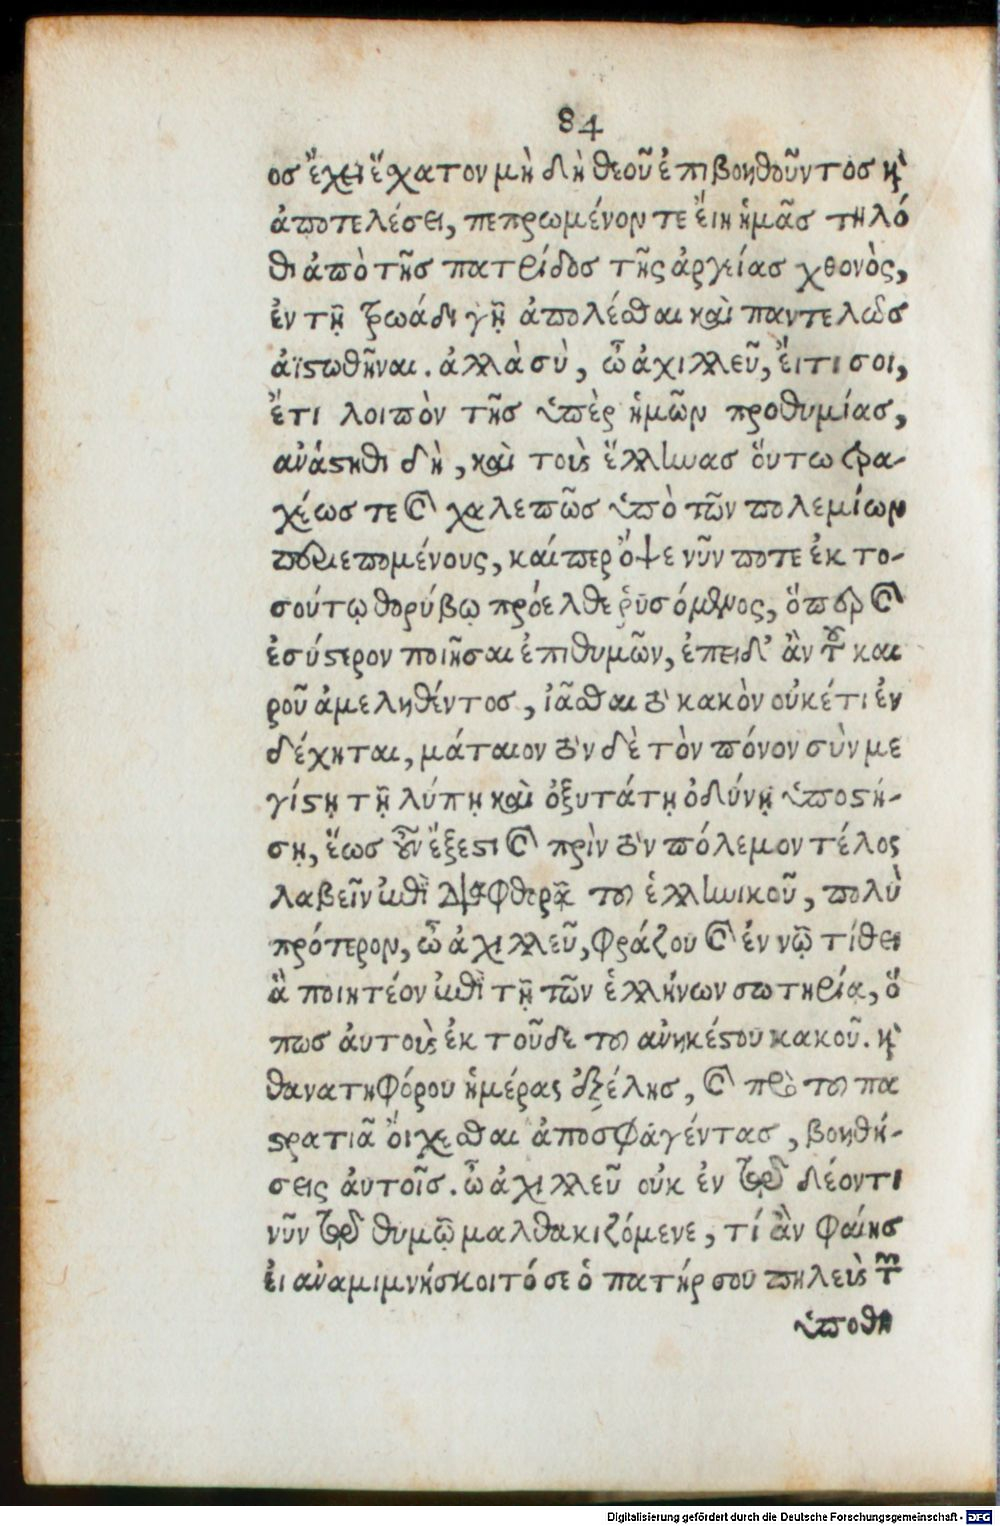 84
ος ἔχει ἔχατον μὴ δὴ θεοῦ ἐπιβοηθοῦντος κỳ
ἀποτελέσει, πεπρωμένον τε ἔιη ἡμᾶς τηλό
θι ἀπὸ τῆς πατρίδος τῆς ἀργείας χθονὸς,
ἐν τῇ τρωάδι γῇ ἀπολέσθαι καὶ παντελῶς
ἀϊστωθῆναι. ἀλλὰ σὺ, ὦ ἀχιλλεῦ, ἔιτι σοι,
ἔτι λοιπὸν τῆς ὑπὲρ ἡμῶν προθυμίας,
ανάστηθι δὴ, καὶ τοὺς ἕλληνας ὅυτω τρα-
χέως τε καὶ χαλεπῶς ὑπὸ τῶν πολεμίων
περιεπομένους, καίπερ ὄψε νῦν ποτε ἐκ το-
σούτῳ θορύβῳ πρόελθε ῥυσόμενος, ὅπερ καὶ
ἐσύστερον ποιῆσαι ἐπιθυμῶν, ἐπειδ' ἂν τοῦ και
ροῦ ἀμεληθέντος, ἰᾶσθαι τὸ κακὸν οὐκέτι ἐν
δέχηται, μάταιον τὸν δὲ τὸν πόνον σὺν με
γίστῃ τῇ λύπῃ καὶ ὀξυτάτῃ ὀδύνῃ ὑποστή-
σῃ, ἕως οὖν ἔξεστι καὶ πρὶν τὸν πόλεμον τέλος
λαβεῖν μετὰ διαφθορᾶς τοῦ ἑλληνικοῦ, πολὺ
πρότερον, ὦ ἀχιλλεῦ, φράζου καὶ ἐν νῷ τίθει
ἃ ποιητέον μετὰ τῇ τῶν ἑλλήνων σωτηρίᾳ, ὅ
πως ἀυτοὺς ἐκ τοῦδε τοῦ ανηκέστου κακοῦ. κỳ
θανατηφόρου ἡμέρας ἐξέλῃς, καὶ πρὸ τοῦ πα
στρατιᾶ ὄιχεσθαι ἀποσφαγέντας, βοηθή-
σεις ἀυτοῖς. ὦ ἀχιλλεῦ οὐκ ἐν τῷ δέοντι
νῦν τῷ θυμῷ μαλθακιζόμενε, τί ἂν φαίης
ἐι αναμιμνήσκοιτό σε ὁ πατήρ σου πηλεὺς τῶν
ὑποθη
Digitalisierung gefördert durch die Deutsche Forschungsgemeinschaft - DFG